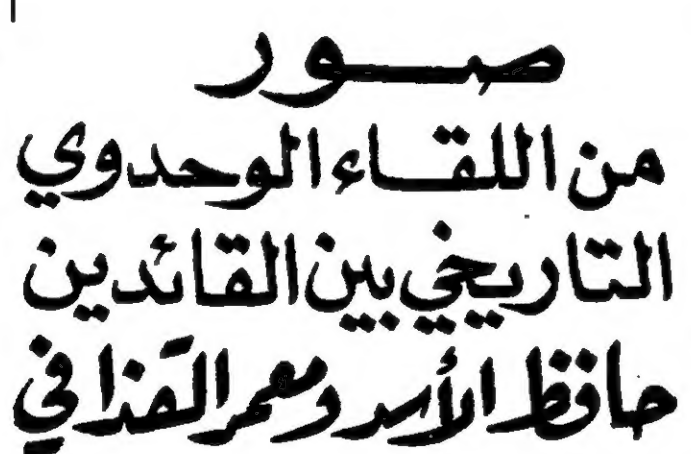 صور
من اللقاء الوحدوي
التاريخي بين القائدين
حافظ الأسد ومعمر القذافي